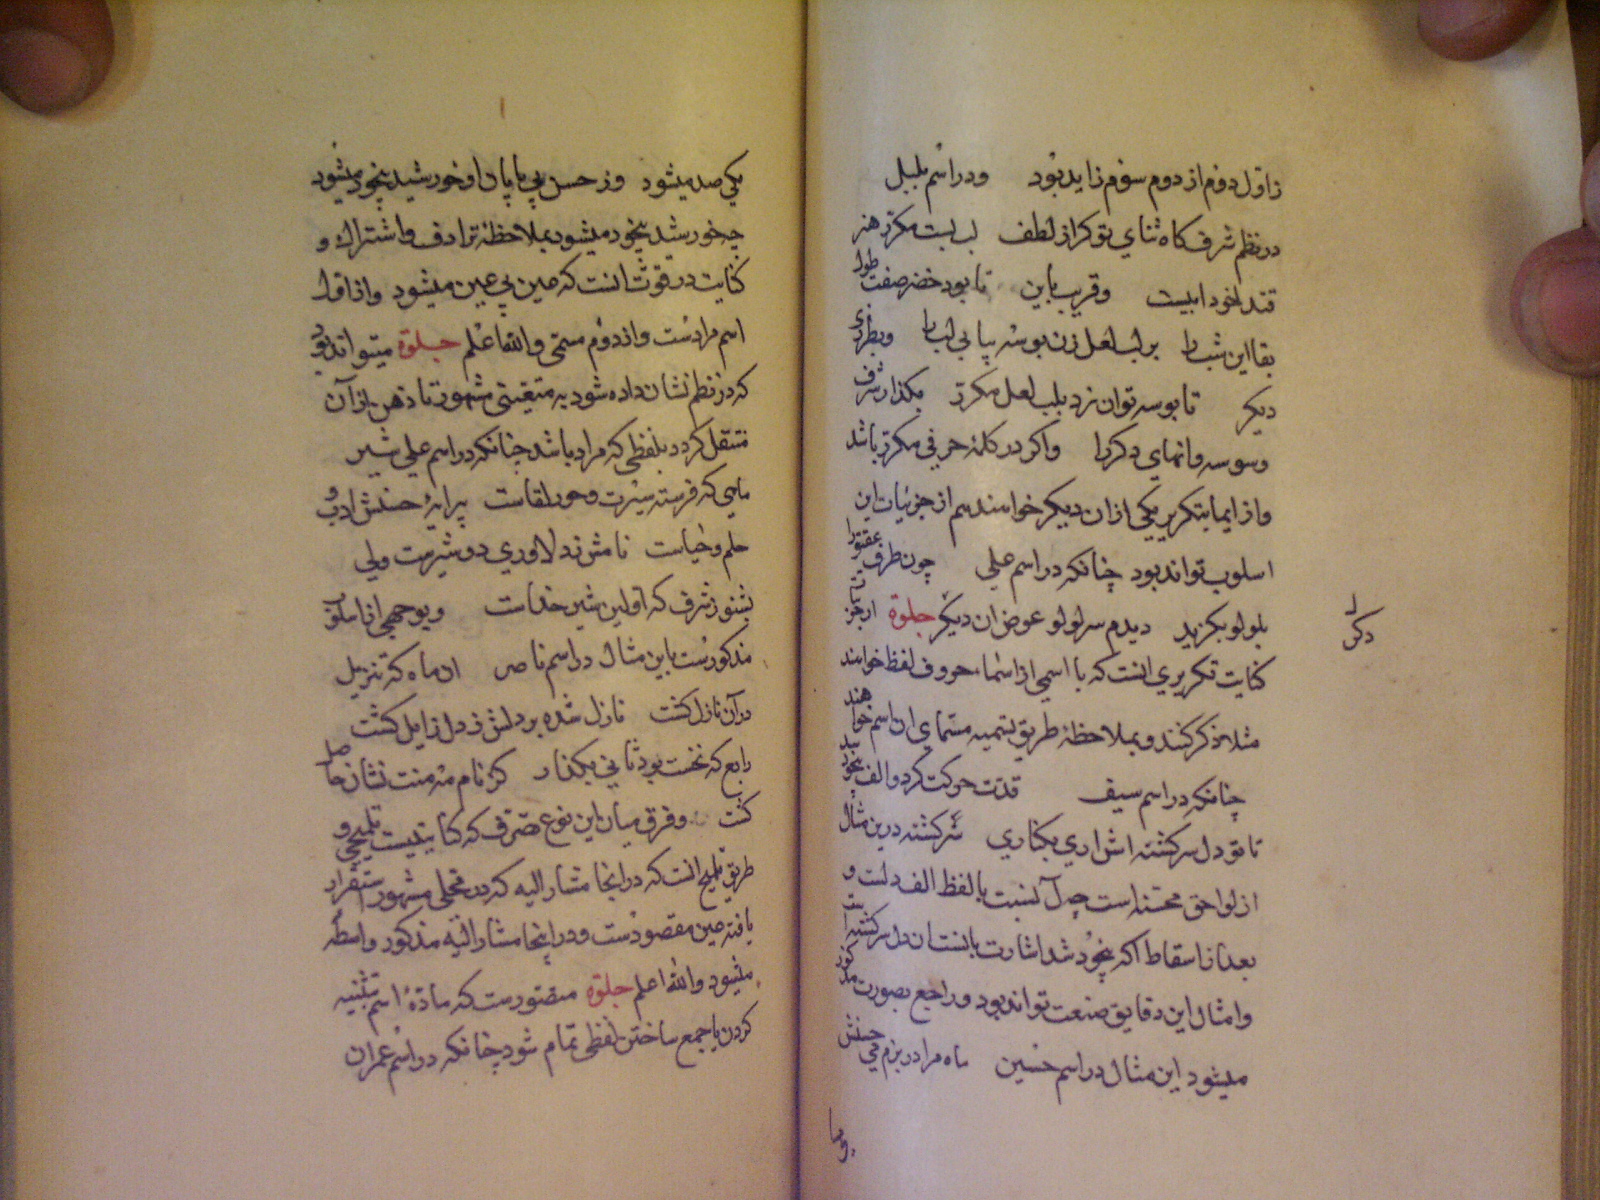 زاول دوم از دوم سوم زاید بود ودر اسم بلبل
در نظم شرف کاه ثنای تو کر از لطف لب بست مکرر هنر
قند خود ابیست وقریب باین تا بود خضر صفت طول
بقا این شب را بر لب لعل زن بوسه پیاپی لب را وبطرزی
دیکر تا بوسه توان زد بلب لعل مکرر بکذار شرف
وسوسه وانمای دکر را واکر در کلمهٔ حرفی مکرر باشد
واز ایما بتکریر یکی از ان دیکر خواهند هم از جزئیات این
اسلوب تواند بود چنانکه در اسم علی چون طرف عقد ترا
بلولو بکزید دیدم سر لولو عوض ان دیکر جلوة از جز
دکر
کنایت تکریری انست که با اسمی از اسماء حروف لفظ خوانند
مثلا ذکر کنند وبملاحظهٔ طریق تسمیه مسمای ان اسم خواهند
چنانکه در اسم سیف قدت حرکت کرد والف بیخود
تا تو دل سرکشته اش اری بکناری سرکشته درین مثال
از لواحق محسنه است چه آن نسبت با لفظ الف دلست و
بعد از اسقاط آکه بیخود شد اشارت بانست ان دل سرکشته است
وامثال این دقایق صنعت تواند بود وراجع بصورت مذکور
میشود این مثال در اسم حسین ماه مرا در بزم می حسنش
یکی صد میشود وز حسن بی پایان او خورشید بیخود میشود
چه خورشید بیخود میشود بملاحظهٔ ترادف واشتراک و
کنایت در قوت انست که عین بی عین میشود واز اول
اسم مرادست واز دوم مسمی والله اعلم جلوة میتواند بود
که در نظم نشان داده شود به متیقنی مشهور تا ذهن از آن
منتقل کردد بلفظی که مراد باشد چنانکه در اسم علی شیر
ماهی که فرسته سیرت وحور لقاست پیرایهٔ حسنش ادب و
حلم وحیاست نامش زد لاوری دو شیرست ولی
بشنو ز شرف که اولین شیر خداست وبوجهی از اسلوب
مذکورست باین مثال در اسم ناصر ان ماه که تنزیل
در آن نازل کشت نازل شده بر دلش ز دل زایل کشت
رابع که نخست بود ثانی بکذار کز نام مه منت نشان حاصل
کشت وفرق میان این نوع تصرف که کنایتیست تلمیحی و
طریق تلمیح انست که در انجا مشار الیه که در محلی مشهور استقرار
یافته عین مقصودست ودر اینجا مشار الیه مذکور واسطه
میشود والله اعلم جلوة متصورست که مادهٔ اسم بتثنیه
کردن یا جمع ساختن لفظی تمام شود چنانکه در اسم عمران